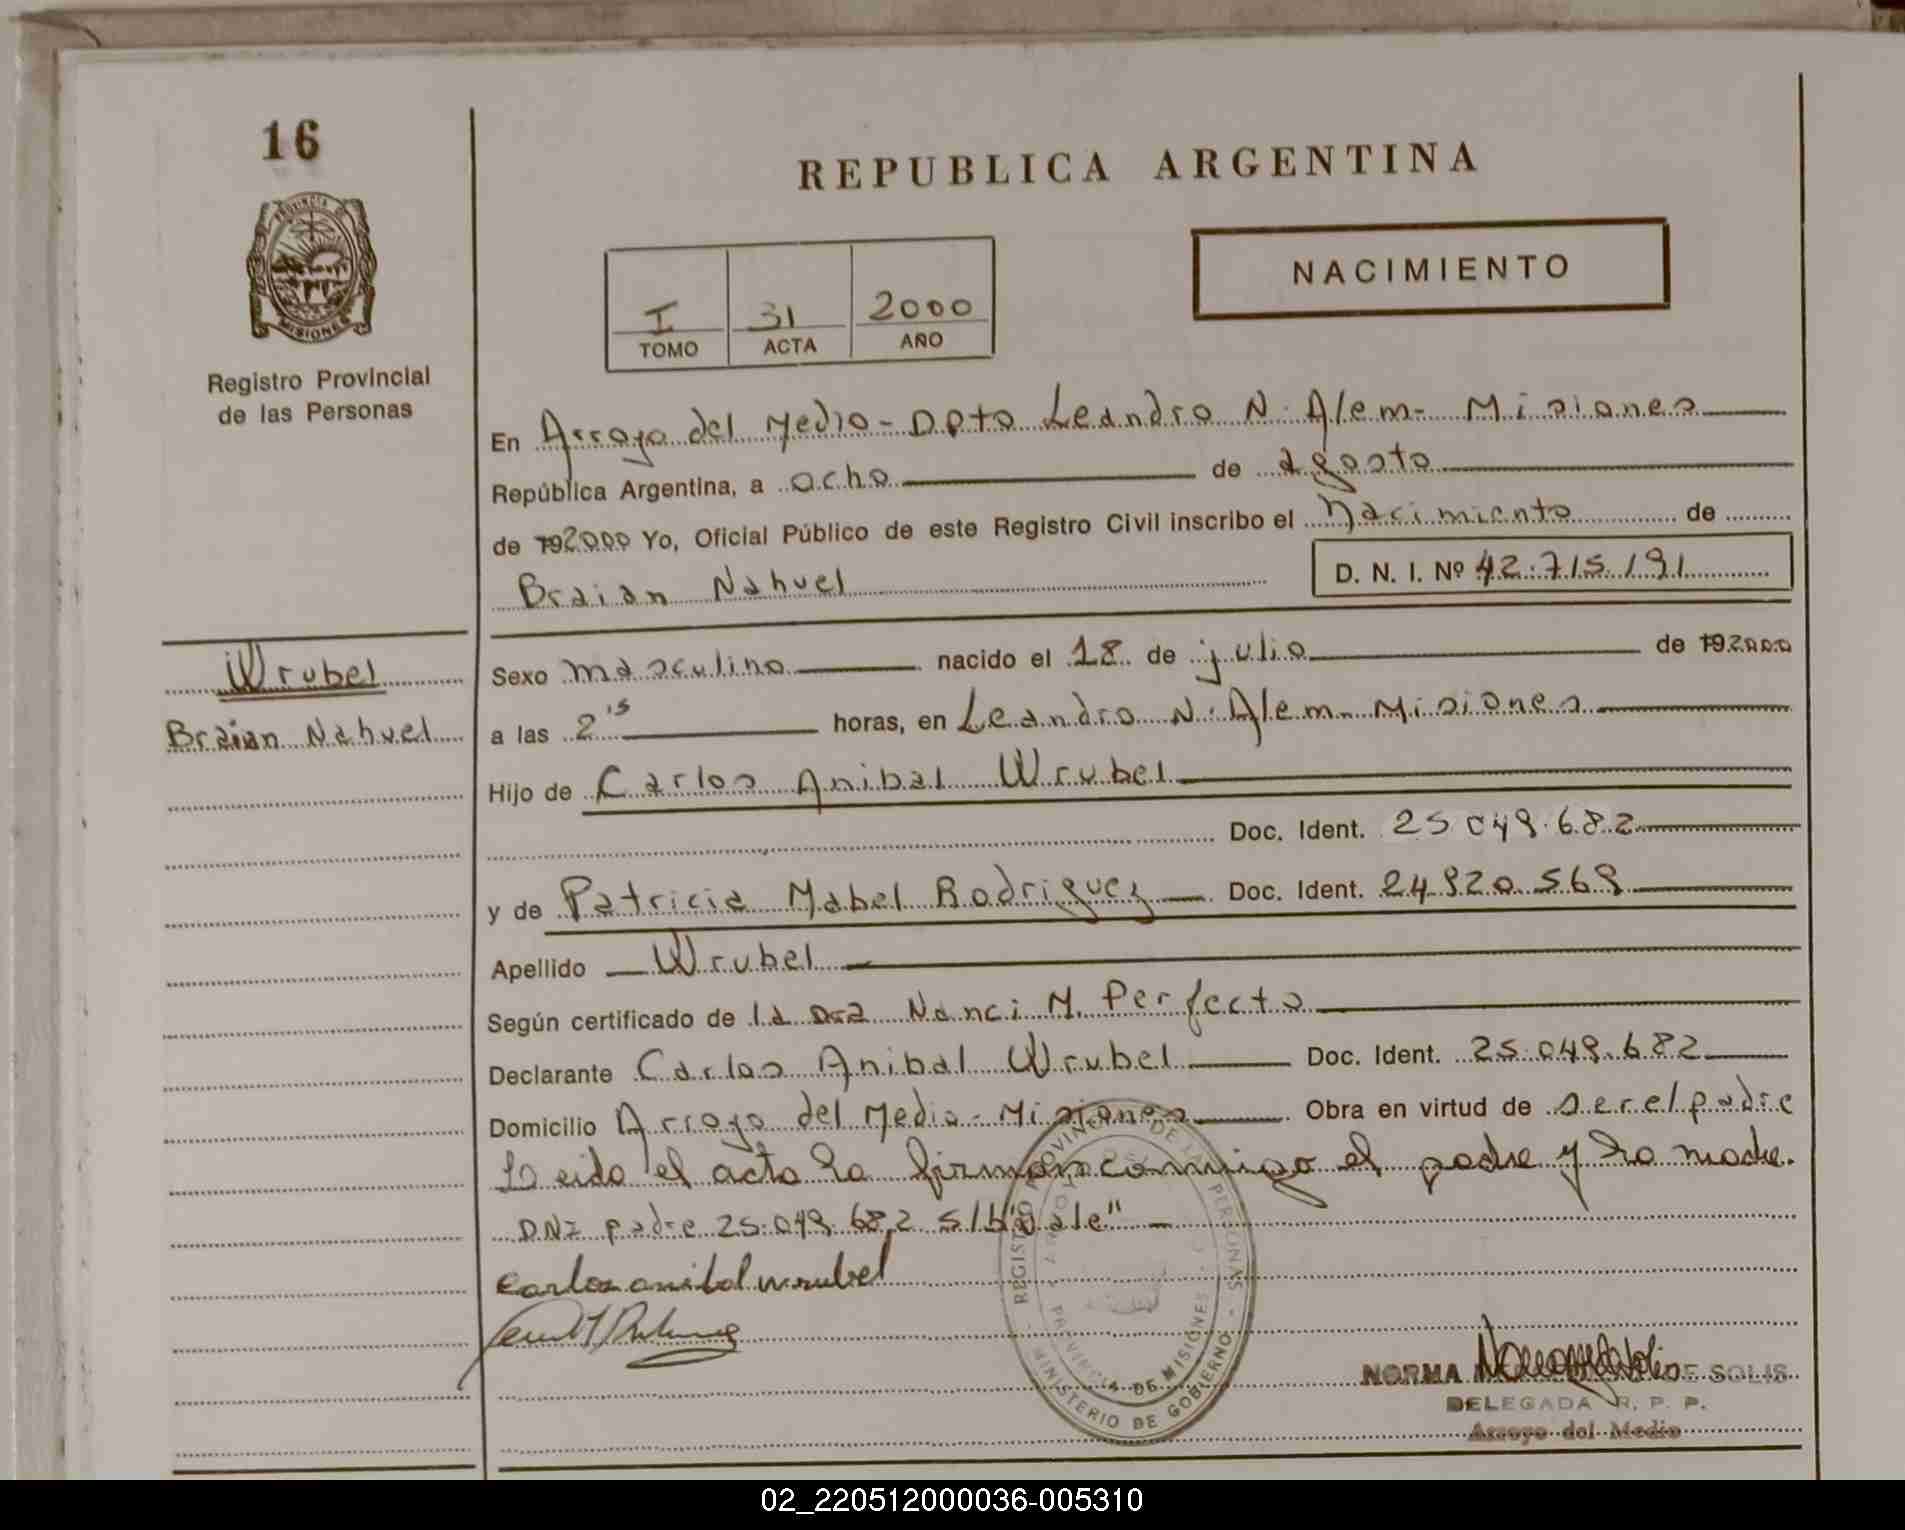 16
PROVINCIA DE
MISIONES
Registro Provincial
de las Personas
REPUBLICA ARGENTINA
NACIMIENTO
I 31 2000
TOMO ACTA AÑO
En Arroyo del Medio - Dpto Leandro N. Alem - Misiones
República Argentina, a ocho de agosto
de 192000 Yo, Oficial Público de este Registro Civil inscribo el Nacimiento de
Braian Nahuel D. N. I. Nº 42.715.191
Wrubel
Braian Nahuel
Sexo masculino nacido el 18 de julio de 192000
a las 2 15 horas, en Leandro N. Alem - Misiones
Hijo de Carlos Anibal Wrubel
Doc. Ident. 25 049.682
y de Patricia Mabel Rodriguez Doc. Ident. 24.920.569
Apellido Wrubel
Según certificado de la Dra Nanci M. Perfecto
Declarante Carlos Anibal Wrubel Doc. Ident. 25.049.682
Domicilio Arroyo del Medio - Misiones Obra en virtud de ser el padre
Leido el acta la firman conmigo el padre y la madre.
DNI padre 25.049.682 s/b "vale" -
carlos anibal wrubel
REGISTRO PROVINCIAL DE LAS PERSONAS - MINISTERIO DE GOBIERNO -
PROVINCIA DE MISIONES
NORMA DE SOLIS
DELEGADA R. P. P.
Arroyo del Medio
02_220512000036-005310